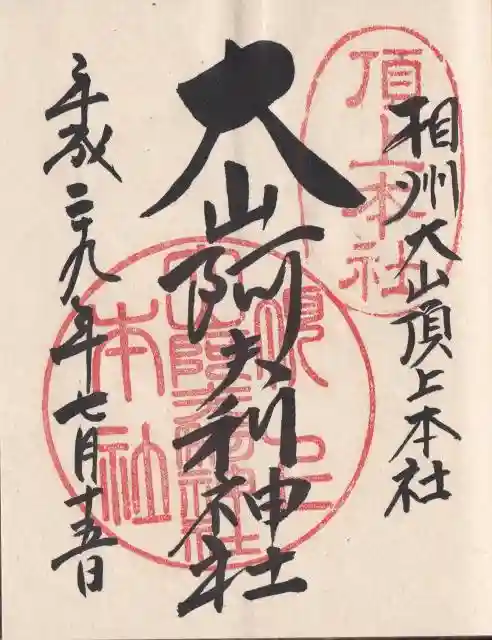 相州大山頂上本社
頂上本社
大山阿夫利神社
頂上
本社
平成二十九年七月十五日